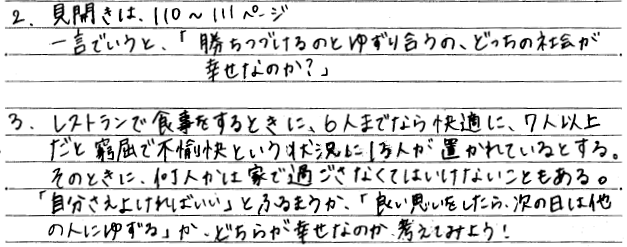 2. 見開きは、110～111ページ
一言でいうと、「勝ちつづけるのとゆずり合うの、どっちの社会が
幸せなのか?」
3. レストランで食事をするときに、6人までなら快適に、7人以上
だと窮屈で不愉快という状況に1万人が置かれているとする。
そのときに、何人かは家で過ごさなくてはいけないこともある。
「自分さえよければいい」とふるまうか、「良い思いをしたら、次の日は他
の人にゆずる」か、どちらが幸せなのか、考えてみよう!